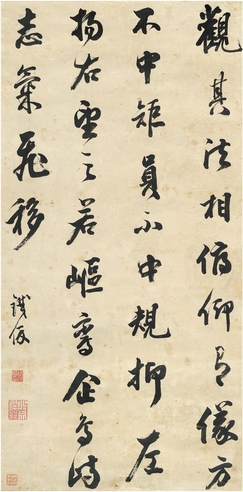 觀其法相俯仰有儀方
不中矩員不中規抑左
揚右望之若嶇竦企鳥峙
志氣飛移
鐵保